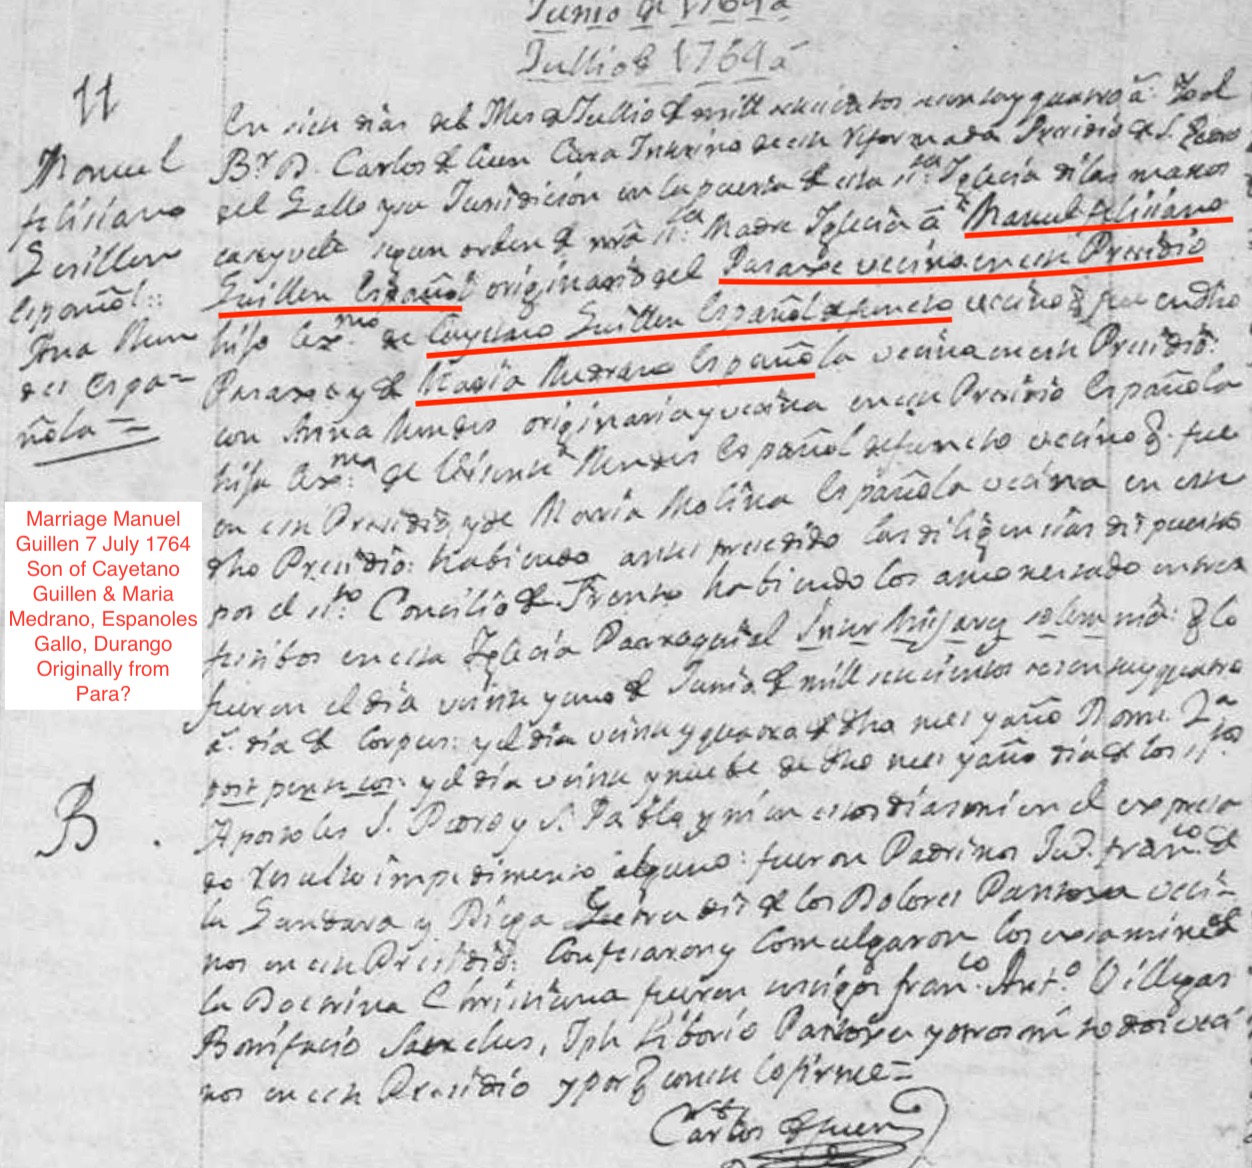 Junio de 1764 a
Jullio de 1764 a
11
Manuel
feliciano
Guillen
español::
Ana Men
des Espa-
ñola =
B
En siete dias del Mes de Jullio de mill setecientos sesenta y quatro a. Yo el
Br. D. Carlos de Cura Interino de este Reformado Presidio de S. Pedro
del Gallo y su Jurisdicion en la puerta de esta Sta. Iglecia di las manos
segun orden de nra Sta. Madre Iglecia a Manuel feliciano
Guillen Español originario del vecino en este Presidio
hijo lexmo. de Cayetano Guillen Español defuncto vecino q fue en dho
y de Maria Medrano Española vecina en este Presidio:
con Anna Mendes originaria y vecina en este Presidio Española
hija lexma. de Visente Mendes Español defuncto vecino q. fue
en este Presidio, y de Maria Molina Española vecina en este
dho Presidio: habiendo antes presedido las diligencias dispuestas
por el Sto. Concilio de Trento habiendo los amonestado en tres
festibos en esta Iglecia Parroquial Inter Missarum solemnia: q lo
fueron el dia veinte y uno de Junio de mill setecientos sesenta y quatro
a. dia de Corpus: y el dia veinte y quatro de dho mes y año Dom.
post penthecos: y el dia veinte y nuebe de dho mes y año dia de los Stos.
Apostoles S. Pedro y S. Pablo, y ni en estos dias ni en el expresa
do resulto impedimento alguno: fueron Padrinos Franco. de
la Gandara y Diega Getrudis de los Dolores Pantoxa veci-
nos en este Presidio: Confesaron y Comulgaron los examine
la Doctrina Christiana fueron testigos franco. Anto. Villegas
Bonifacio Sanches, Jph Liborio Pantoxa y otros mu todos veci
nos en este Presidio y porq conste lo firme =
Carlos de
Marriage Manuel
Guillen 7 July 1764
Son of Cayetano
Guillen & Maria
Medrano, Espanoles
Gallo, Durango
Originally from
Para?